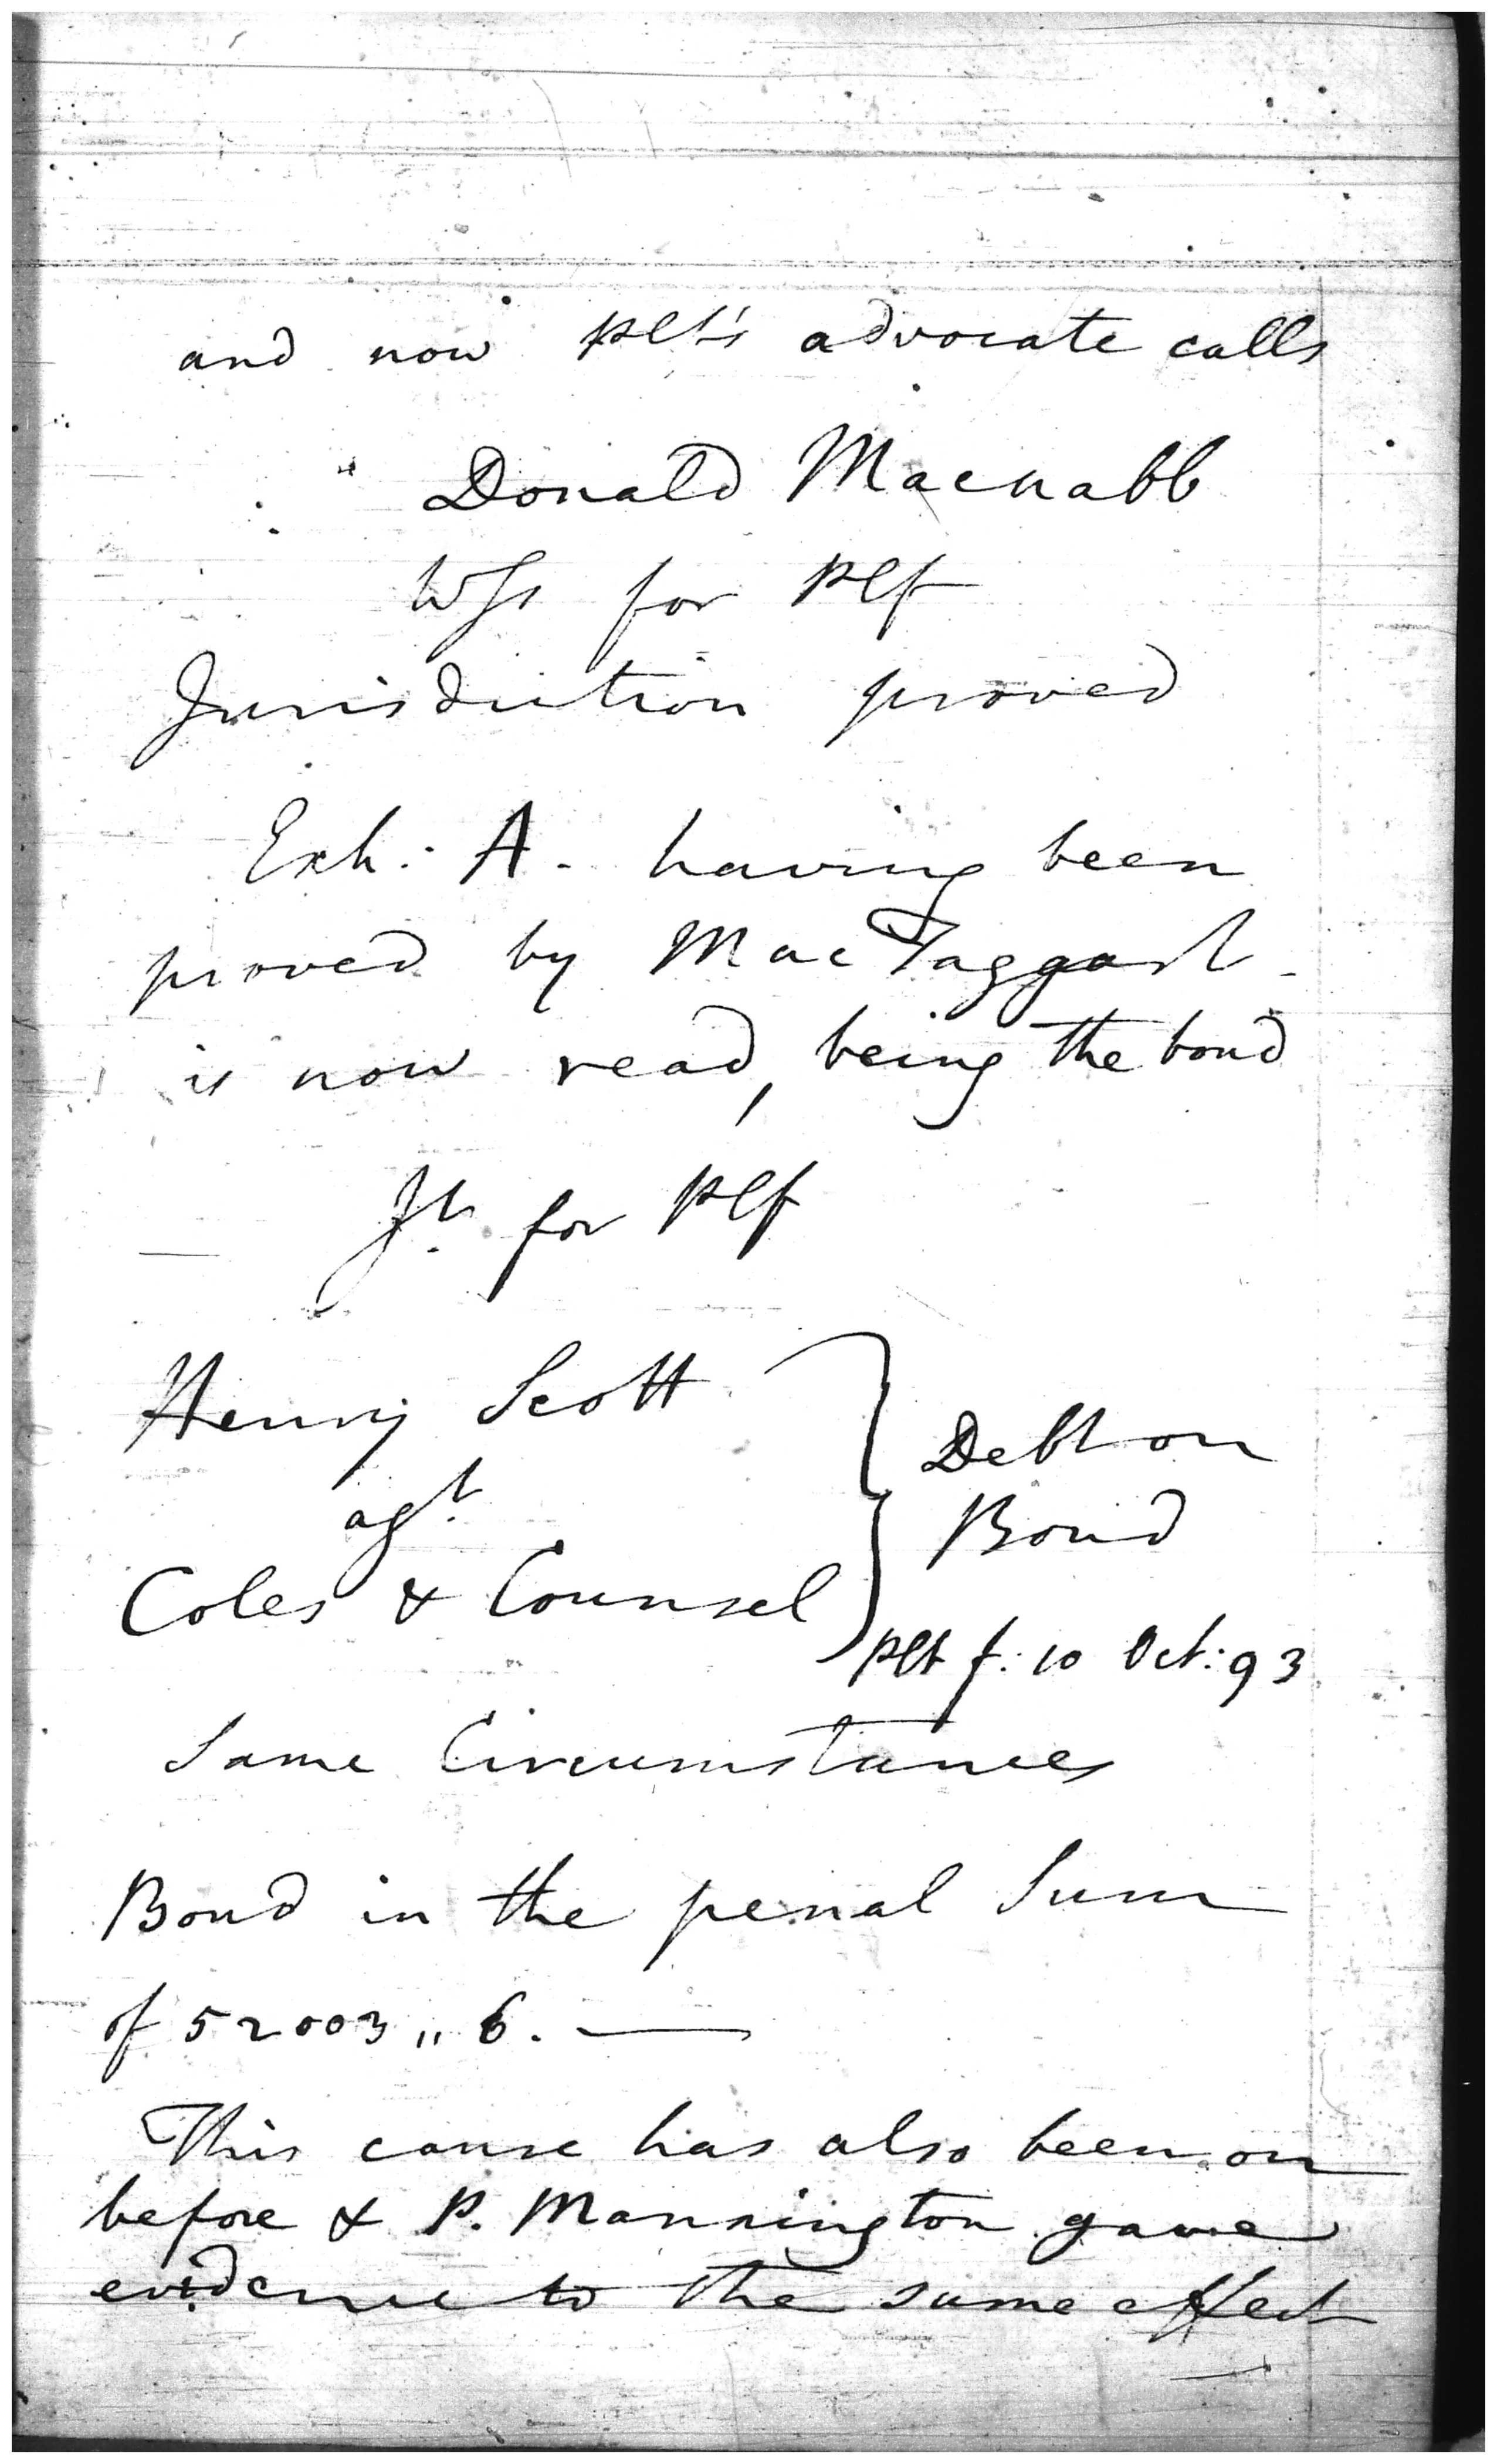 and now Plt's advocate calls
Donald Macnabb
Wss for Plf
Jurisdiction proved
Exh: A. having been
proved by MacTaggart
is now read, being the bond
Jt. for Plf
Henry Scott
agt.
Coles & Counsel
Debt on
Bond
Plt f: 10 Oct: 93
Same Circumstances
Bond in the penal Sum
of 52003 ,, 6. —
This cause has also been on
before & P. Mannington gave
evidence to the same effect